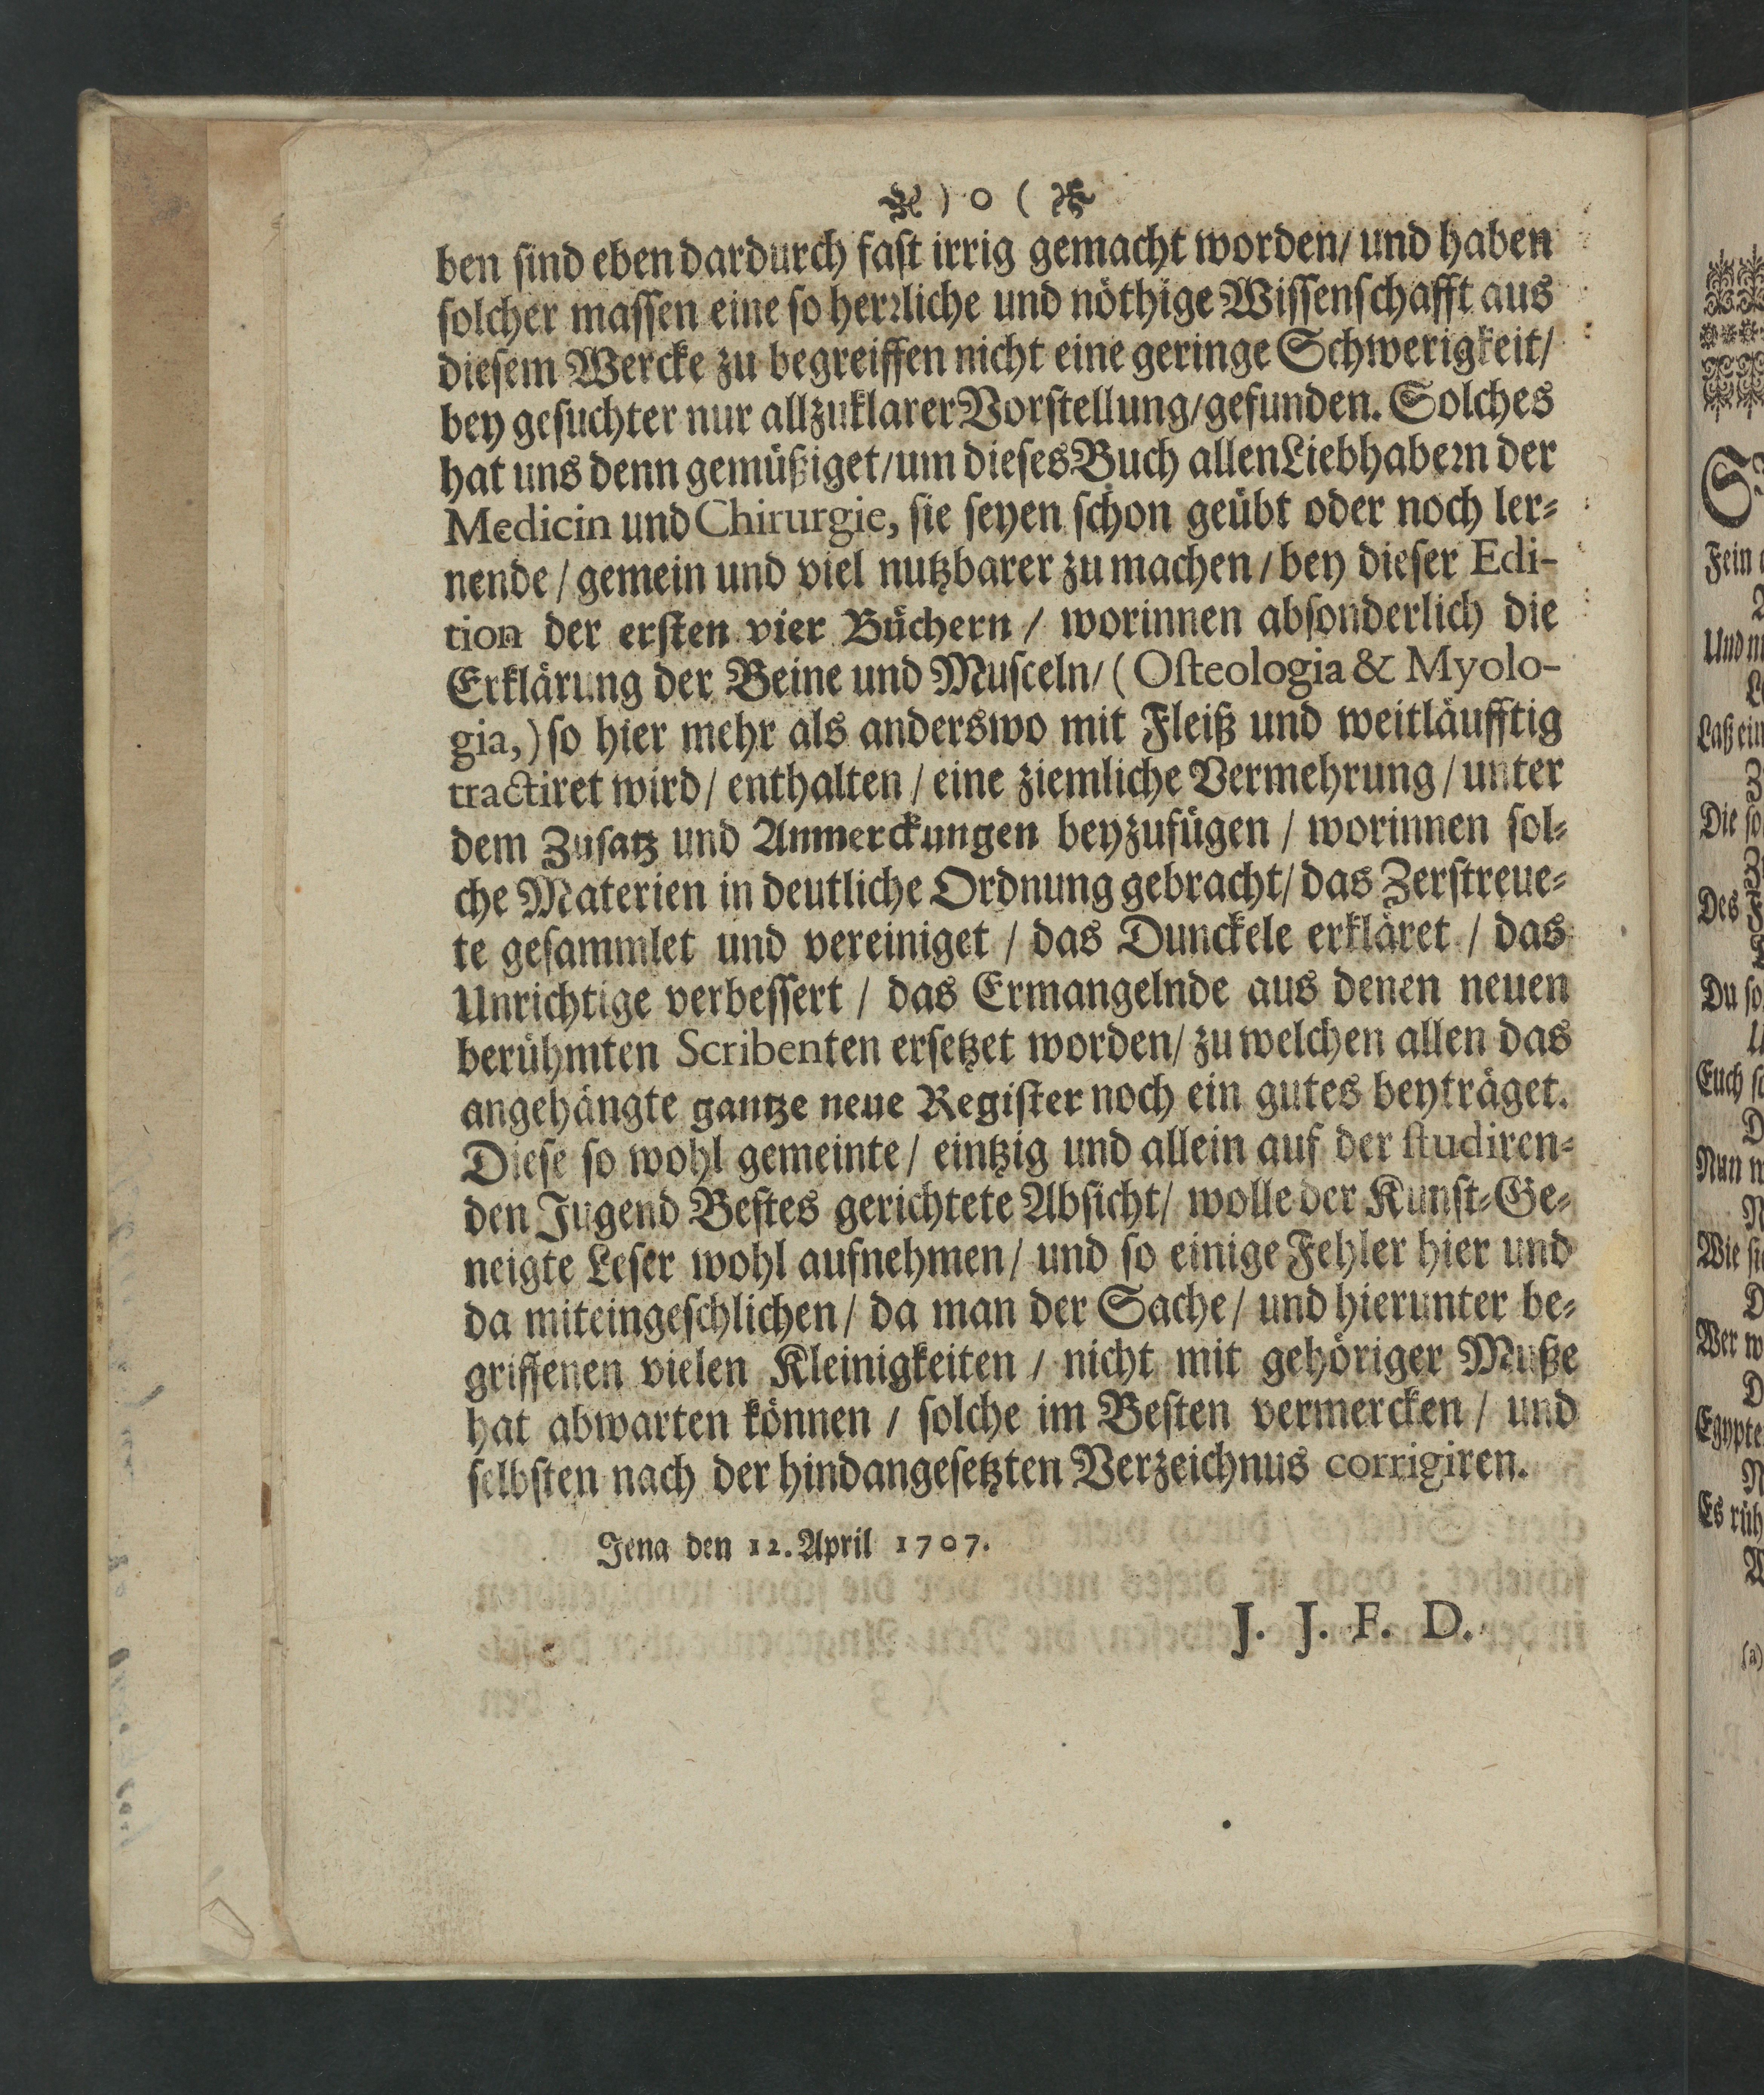 ) o (
ben sind eben dardurch fast irrig gemacht worden/ und haben
solcher massen eine so herrliche und nöthige Wissenschafft aus
diesem Wercke zu begreiffen nicht eine geringe Schwerigkeit/
bey gesuchter nur allzuklarer Vorstellung/ gefunden. Solches
hat uns denn gemüßiget/ um dieses Buch allen Liebhabern der
Medicin und Chirurgie, sie seyen schon geübt oder noch ler⸗
nende / gemein und viel nutzbarer zu machen / bey dieser Edi-
tion der ersten vier Büchern / worinnen absonderlich die
Erklärung der Beine und Musceln/ ( Osteologia & Myolo-
gia,) so hier mehr als anderswo mit Fleiß und weitläufftig
tractiret wird/ enthalten / eine ziemliche Vermehrung / unter
dem Zusatz und Anmerckungen beyzufügen / worinnen sol⸗
che Materien in deutliche Ordnung gebracht/ das Zerstreue⸗
te gesammlet und vereiniget / das Dunckele erkläret / das
Unrichtige verbessert / das Ermangelnde aus denen neuen
berühmten Scribenten ersetzet worden/ zu welchen allen das
angehängte gantze neue Register noch ein gutes beyträget.
Diese so wohl gemeinte/ eintzig und allein auf der studiren⸗
den Jugend Bestes gerichtete Absicht/ wolle der Kunst⸗Ge⸗
neigte Leser wohl aufnehmen/ und so einige Fehler hier und
da miteingeschlichen/ da man der Sache/ und hierunter be⸗
griffenen vielen Kleinigkeiten / nicht mit gehöriger Muße
hat abwarten können / solche im Besten vermercken / und
selbsten nach der hindangesetzten Verzeichnus corrigiren.
Jena den 12. April 1707.
J. J. F. D.
Fein
Und
Laß ein
Die so
Des
Du so
Euch
Nun
Wie
Wer
Es
(a)